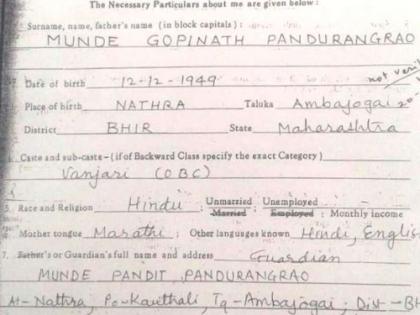 The Necessary Particulars about me are given below :
Surname, name, father's name (in block capitals) :
MUNDE GOPINATH PANDURANGRAO
Date of birth 12-12-1949
not veri
Place of birth NATHRA Taluka Ambajogai
District BHIR State Maharashtra
Caste and sub-caste - (if of Backward Class specify the exact Category)
Vanjari (OBC)
5. Race and Religion Hindu ; Unmarried Unemployed
Married Employed : Monthly income
Mother tongue Marathi ; Other languages known Hindi, Englis
7. Father's or Guardian's full name and address Guardian
MUNDE PANDIT PANDURANGRAO
At- Nathra, Po- Kauthali, Tq- Ambajogai ; Dist - Bh